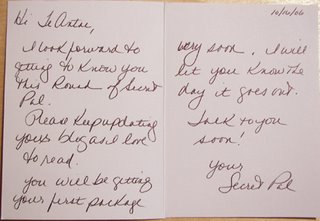 Hi Te Antae,
I look forward to
getting to know you
this Round of Secret
Pal.
Please Keep updating
your blog as I love
to read.
you will be getting
your first package
10/16/06
very soon. I will
let you know the
day it goes out.
Talk to you
soon!
your
Secret Pal